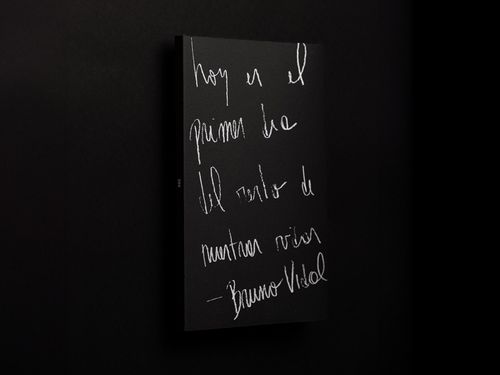 hoy es el
primer día
del resto de
nuestras vidas
— Bruno Vidal